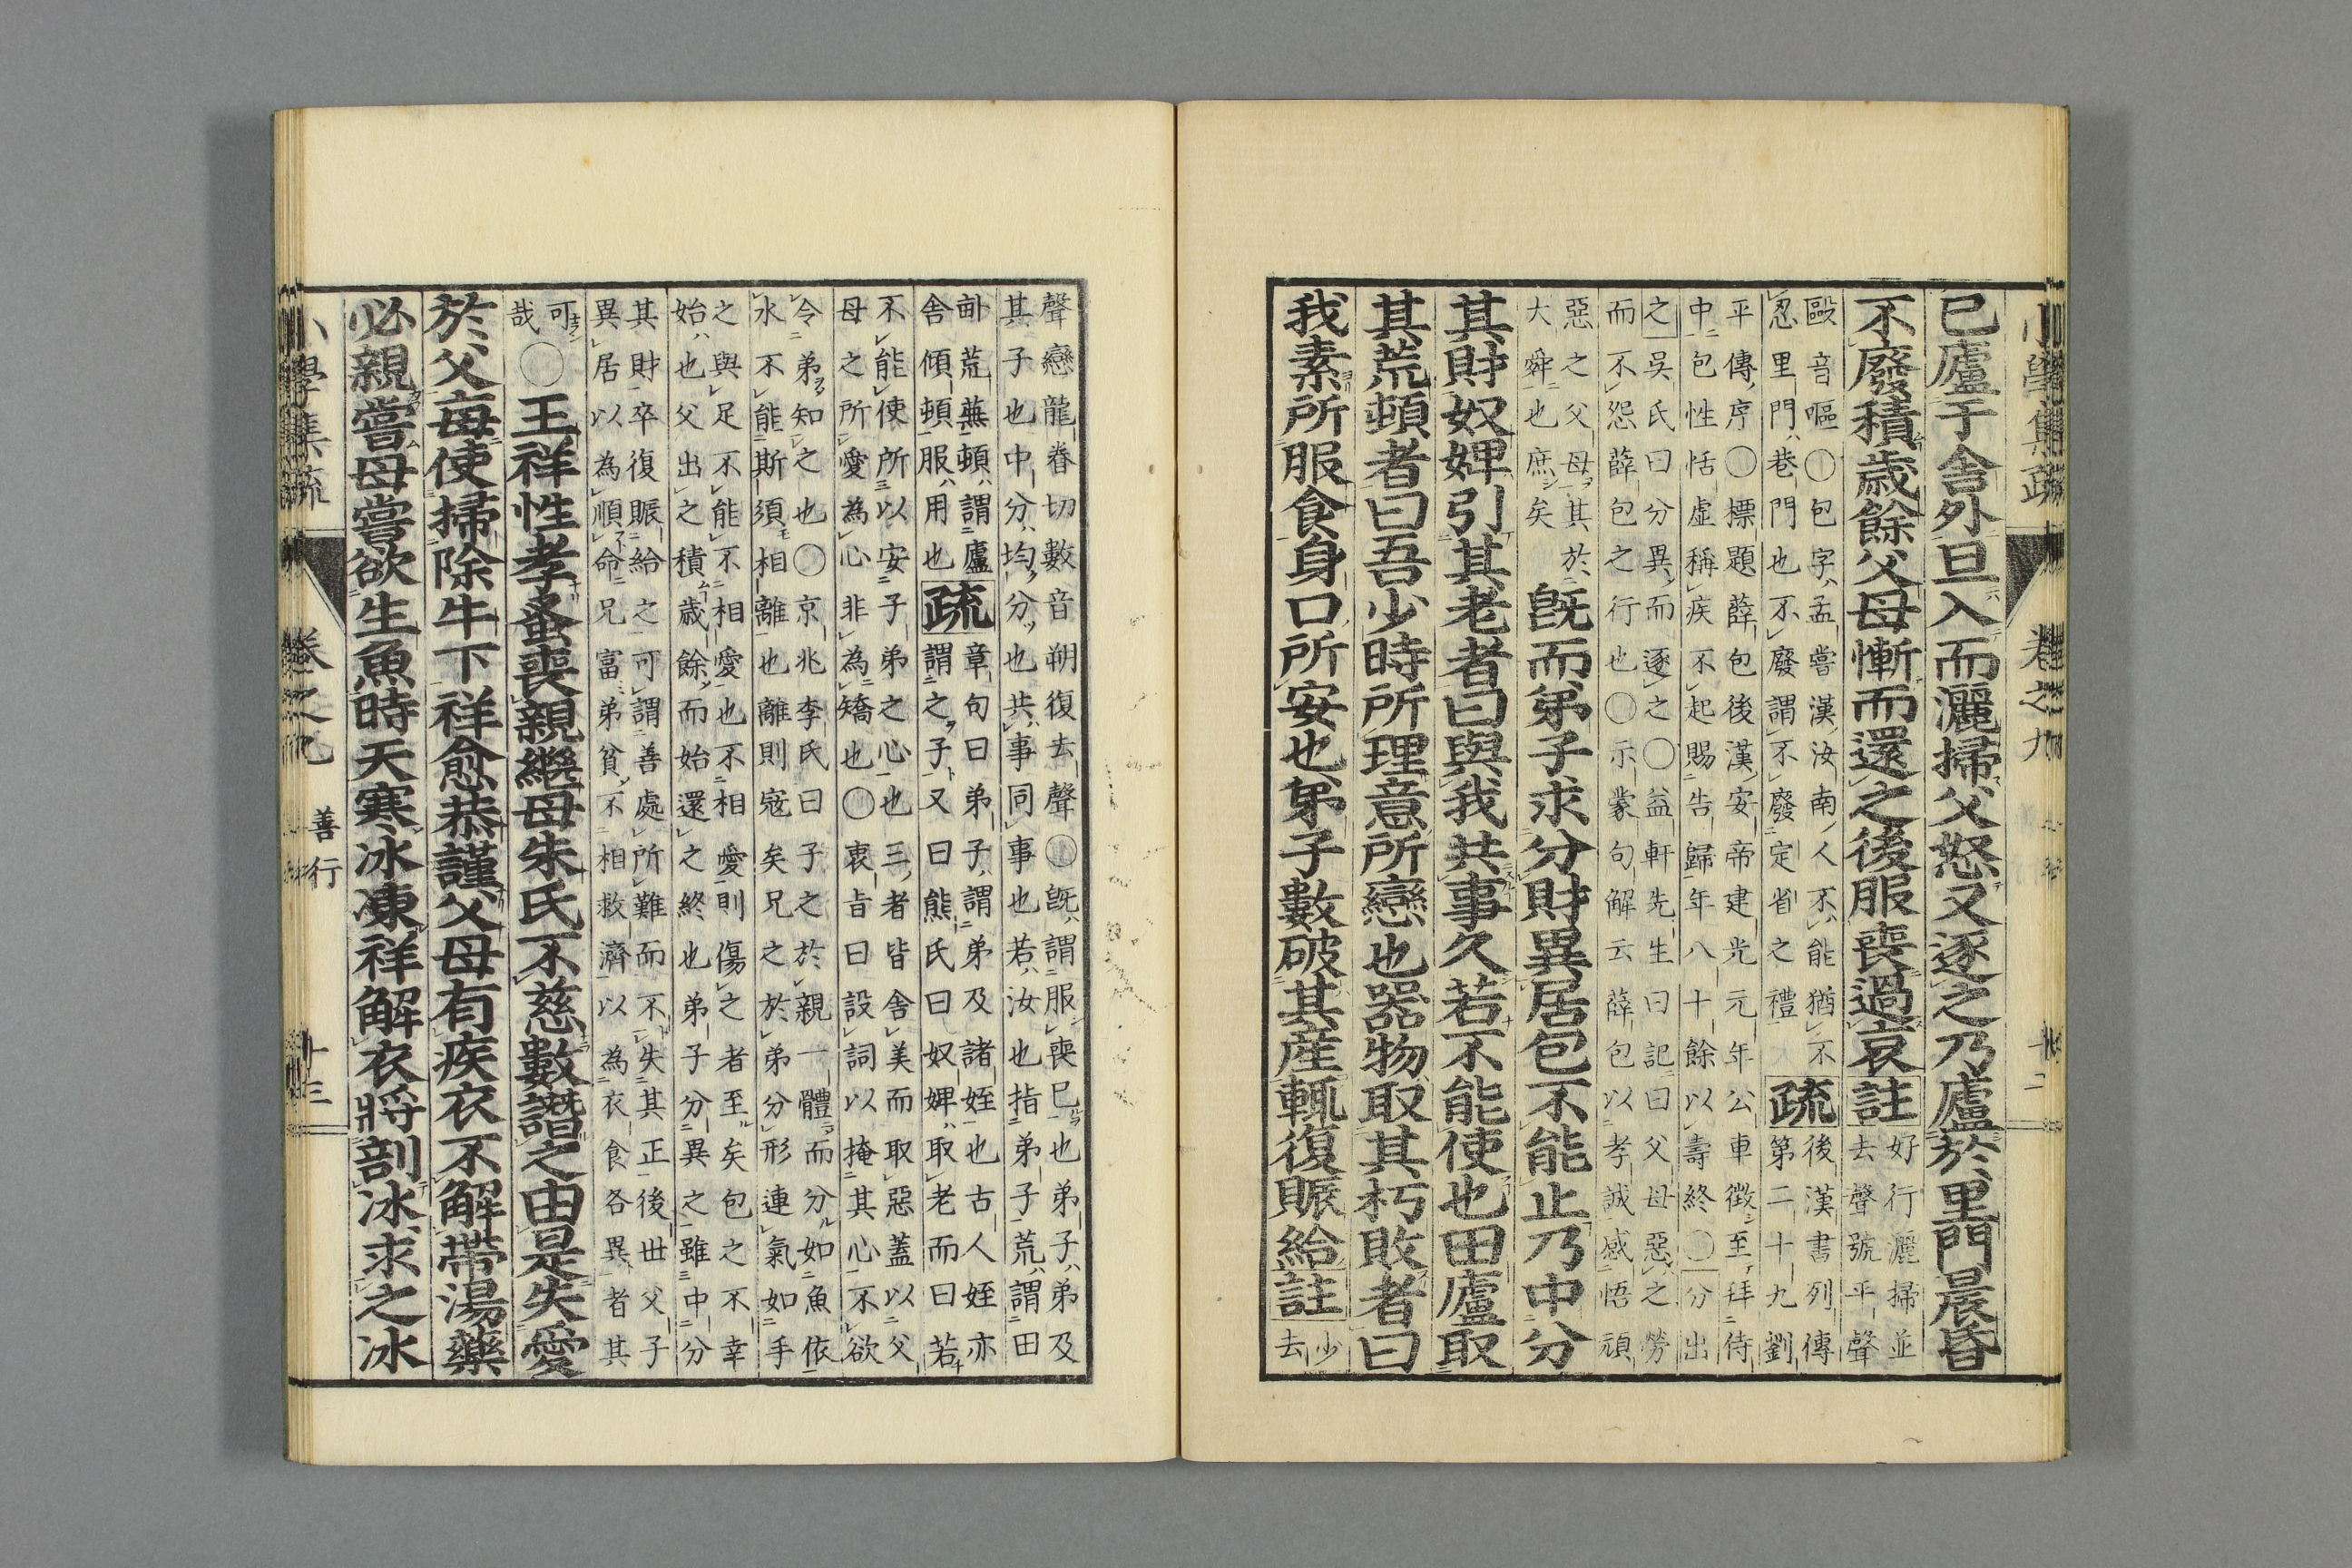 小學集疏 卷之九 十二
已廬于舍外旦入而灑掃父怒又逐之乃廬於里門晨昏
不廢積歲餘父母慚而還之後服喪過哀註
好行灑掃並
去聲號平聲
毆音嘔〇包字孟嘗漢汝南人不能猶不
忍里門巷門也不廢謂不廢定省之禮
疏
後漢書列傳
第二十九劉
平傳序〇標題薛包後漢安帝建光元年公車徴至拜侍
中包性恬虛稱疾不起賜告歸年八十餘以壽終〇分出
之吳氏曰分異而逐之〇益軒先生曰記曰父母惡之勞
而不怨薛包之行也〇示蒙句解云薛包以孝誠感悟頑
惡之父母其於
大舜也庶矣
既而弟子求分財異居包不能止乃中分
其財奴婢引其老者曰與我共事久若不能使也田廬取
其荒頓者曰吾少時所理意所戀也器物取其朽敗者曰
我素所服食身口所安也弟子數破其産輒復賑給註
少
去
聲戀龍眷切數音朔復去聲〇既謂服喪已也弟子弟及
其子也中分均分也共事同事也若汝也指弟子荒謂田
卧荒蕪頓謂廬
舍傾頓服用也
疏
章句曰弟子謂弟及諸姪也古人姪亦
謂之子又曰熊氏曰奴婢取老而曰若
不能使所以安子弟之心也三者皆舎美而取惡蓋以父
母之所愛為心非為矯也〇衷旨曰設詞以掩其心不欲
令弟知之也〇京兆李氏曰子之於親一體而分如魚依
水不能斯須相離也離則寇矣兄之於弟分形連氣如手
之與足不能不相愛也不相愛則傷之者至矣包之不幸
始也父出之積歲餘而始還之終也弟子分異之雖中分
其財卒復賑給之可謂善處所難而不失其正後世父子
異居以為順命兄富弟貧不相救濟以為衣食各異者其
可
哉
〇王祥性孝蚤喪親繼母朱氏不慈數譖之由是失愛
於父毎使掃除牛下祥愈恭謹父母有疾衣不解帶湯藥
必親嘗母嘗欲生魚時天寒冰凍祥解衣將剖冰求之冰
小學集疏 卷之九 善行 十三